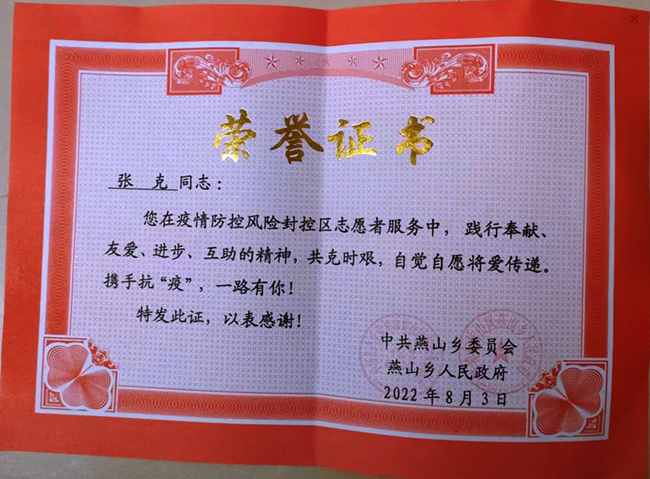 荣誉证书
张 克 同志：
您在疫情防控风险封控区志愿者服务中，践行奉献、
友爱、进步、互助的精神，共克时艰，自觉自愿将爱传递。
携手抗“疫”，一路有你！
特发此证，以表感谢！
中共燕山乡委员会
燕山乡人民政府
2022年8月3日